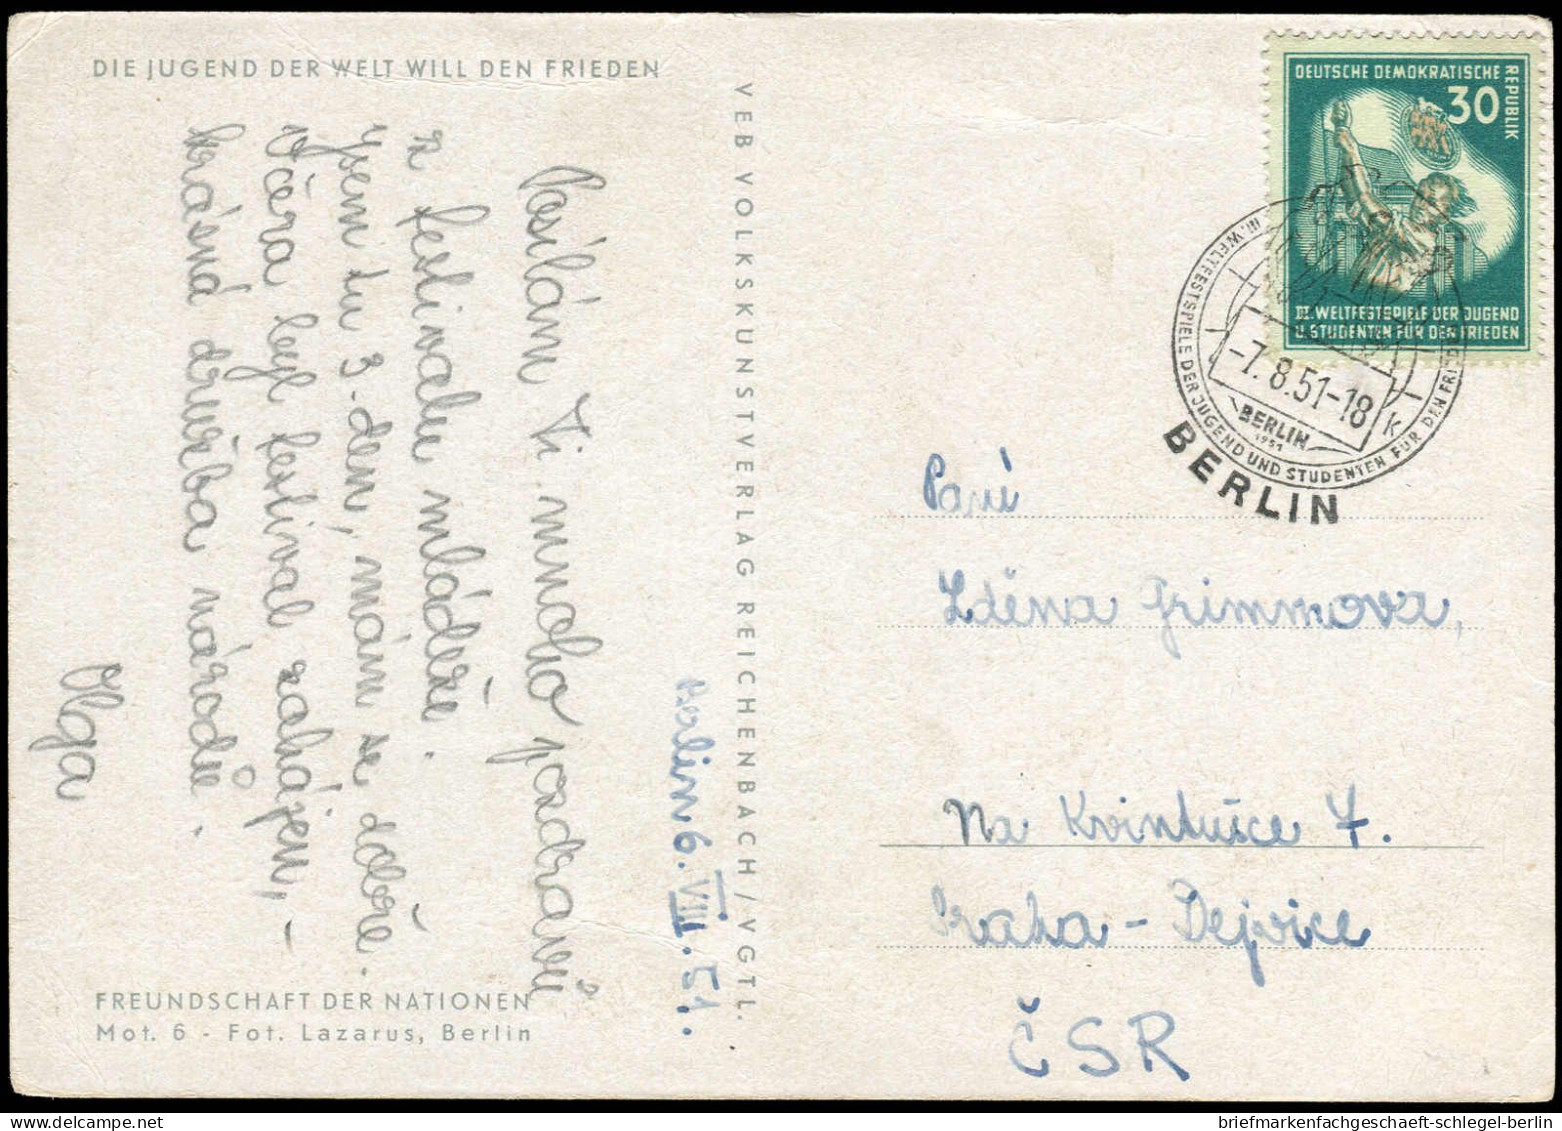 DIE JUGEND DER WELT WILL DEN FRIEDEN
Berlin 6. VIII. 51.
Posílám Ti mnoho pozdravů
z festivalu mládeže.
Jsem tu 3. den, mám se dobře.
Včera byl festival zahájen, –
krásná družba národů.
Olga
FREUNDSCHAFT DER NATIONEN
Mot. 6 - Fot. Lazarus, Berlin
VEB VOLKSKUNSTVERLAG REICHENBACH/VGTL.
DEUTSCHE DEMOKRATISCHE
REPUBLIK
30
III. WELTFESTSPIELE DER JUGEND
U. STUDENTEN FÜR DEN FRIEDEN
III. WELTFESTSPIELE DER JUGEND UND STUDENTEN FÜR DEN FRIEDEN
-7.8.51-18
k
BERLIN
1951
BERLIN
Paní
Zděna Grimmova,
Na Kvintusce 7.
Praha - Dejvice
ČSR
briefmarkenfachgeschaeft-schlegel-berlin